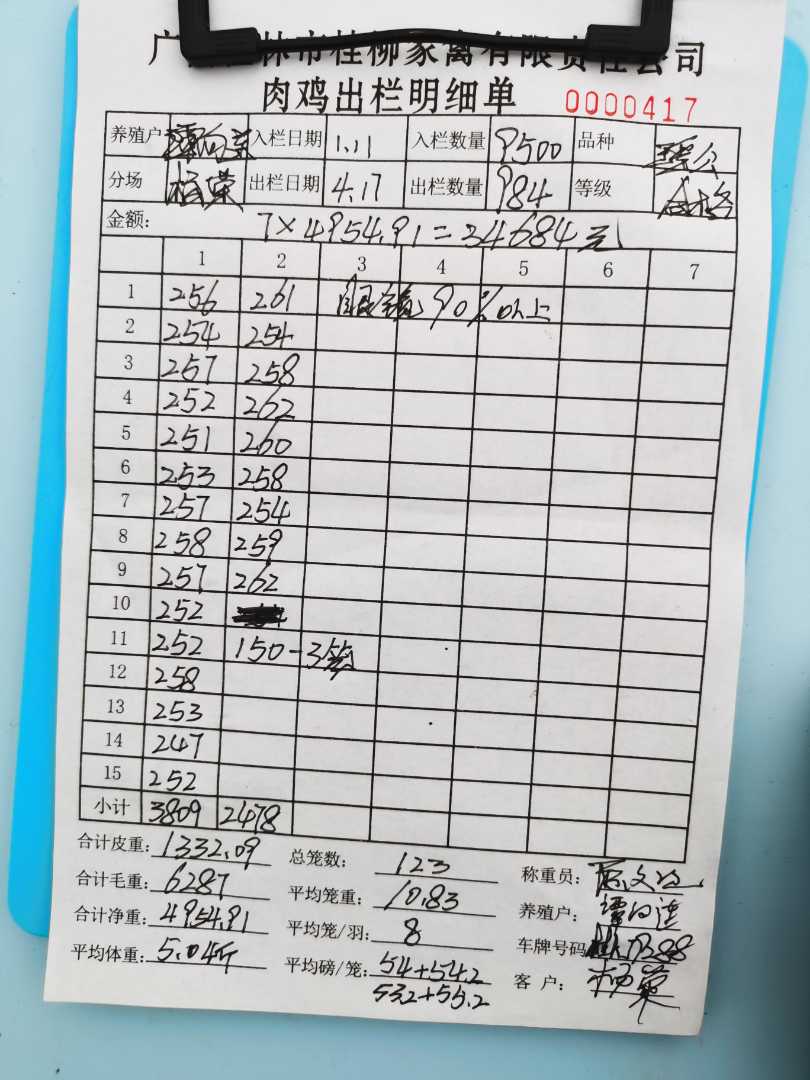 林市桂柳家禽有限责任公司
肉鸡出栏明细单 0000417
养殖户 入栏日期 1.11 入栏数量 9500 品种
分场 杨荣 出栏日期 4.17 出栏数量 984 等级 合格
金额: 7×4954.91=34684元
1 2 3 4 5 6 7
1 256 261 90%以上
2 254 254
3 257 258
4 252 262
5 251 260
6 253 258
7 257 254
8 258 259
9 257 262
10 252
11 252 150-3笼
12 258
13 253
14 247
15 252
小计 3809 2478
合计皮重: 1332.09 总笼数: 123 称重员:
合计毛重: 6287 平均笼重: 10.83 养殖户:
合计净重: 4954.91 平均笼/羽: 8 车牌号码
平均体重: 5.04斤 平均磅/笼: 54+54.2 客户: 杨荣
53.2+55.2